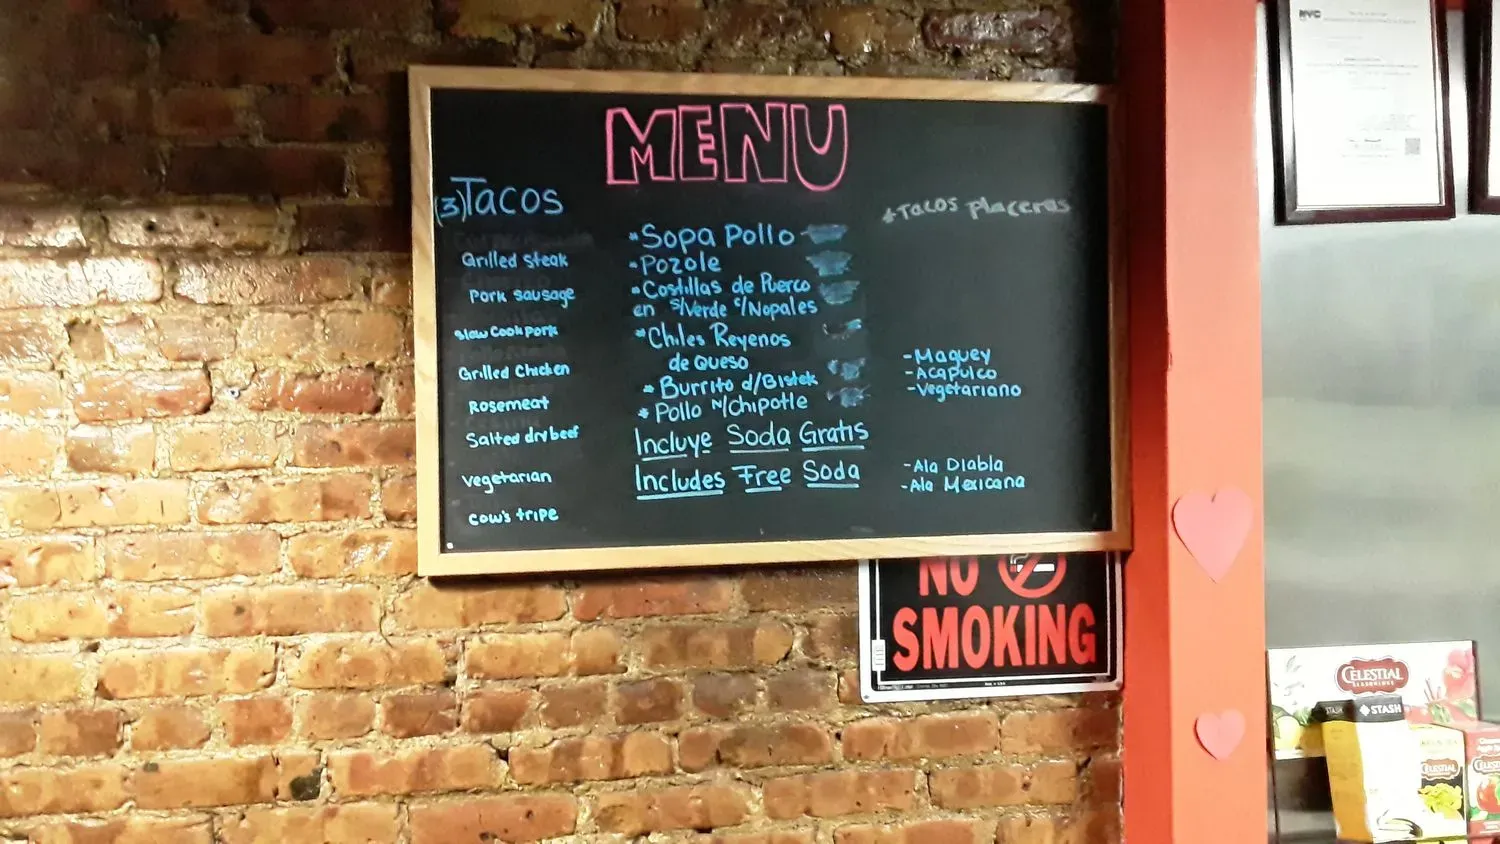 MENU
(3)Tacos
Grilled steak
Pork sausage
slow Cook pork
Grilled Chicken
Rosemeat
Salted dry beef
vegetarian
cow's tripe
*Sopa Pollo
*Pozole
*Costillas de Puerco
en S/Verde c/Nopales
*Chiles Reyenos
de Queso
*Burrito d/Bistek
*Pollo N/Chipotle
Incluye Soda Gratis
Includes Free Soda
*Tacos Placeros
-Maguey
-Acapulco
-Vegetariano
-Ala Diabla
-Ala Mexicana
NO
SMOKING
NYC
CELESTIAL
SEASONINGS
STASH
STASH
CELESTIAL